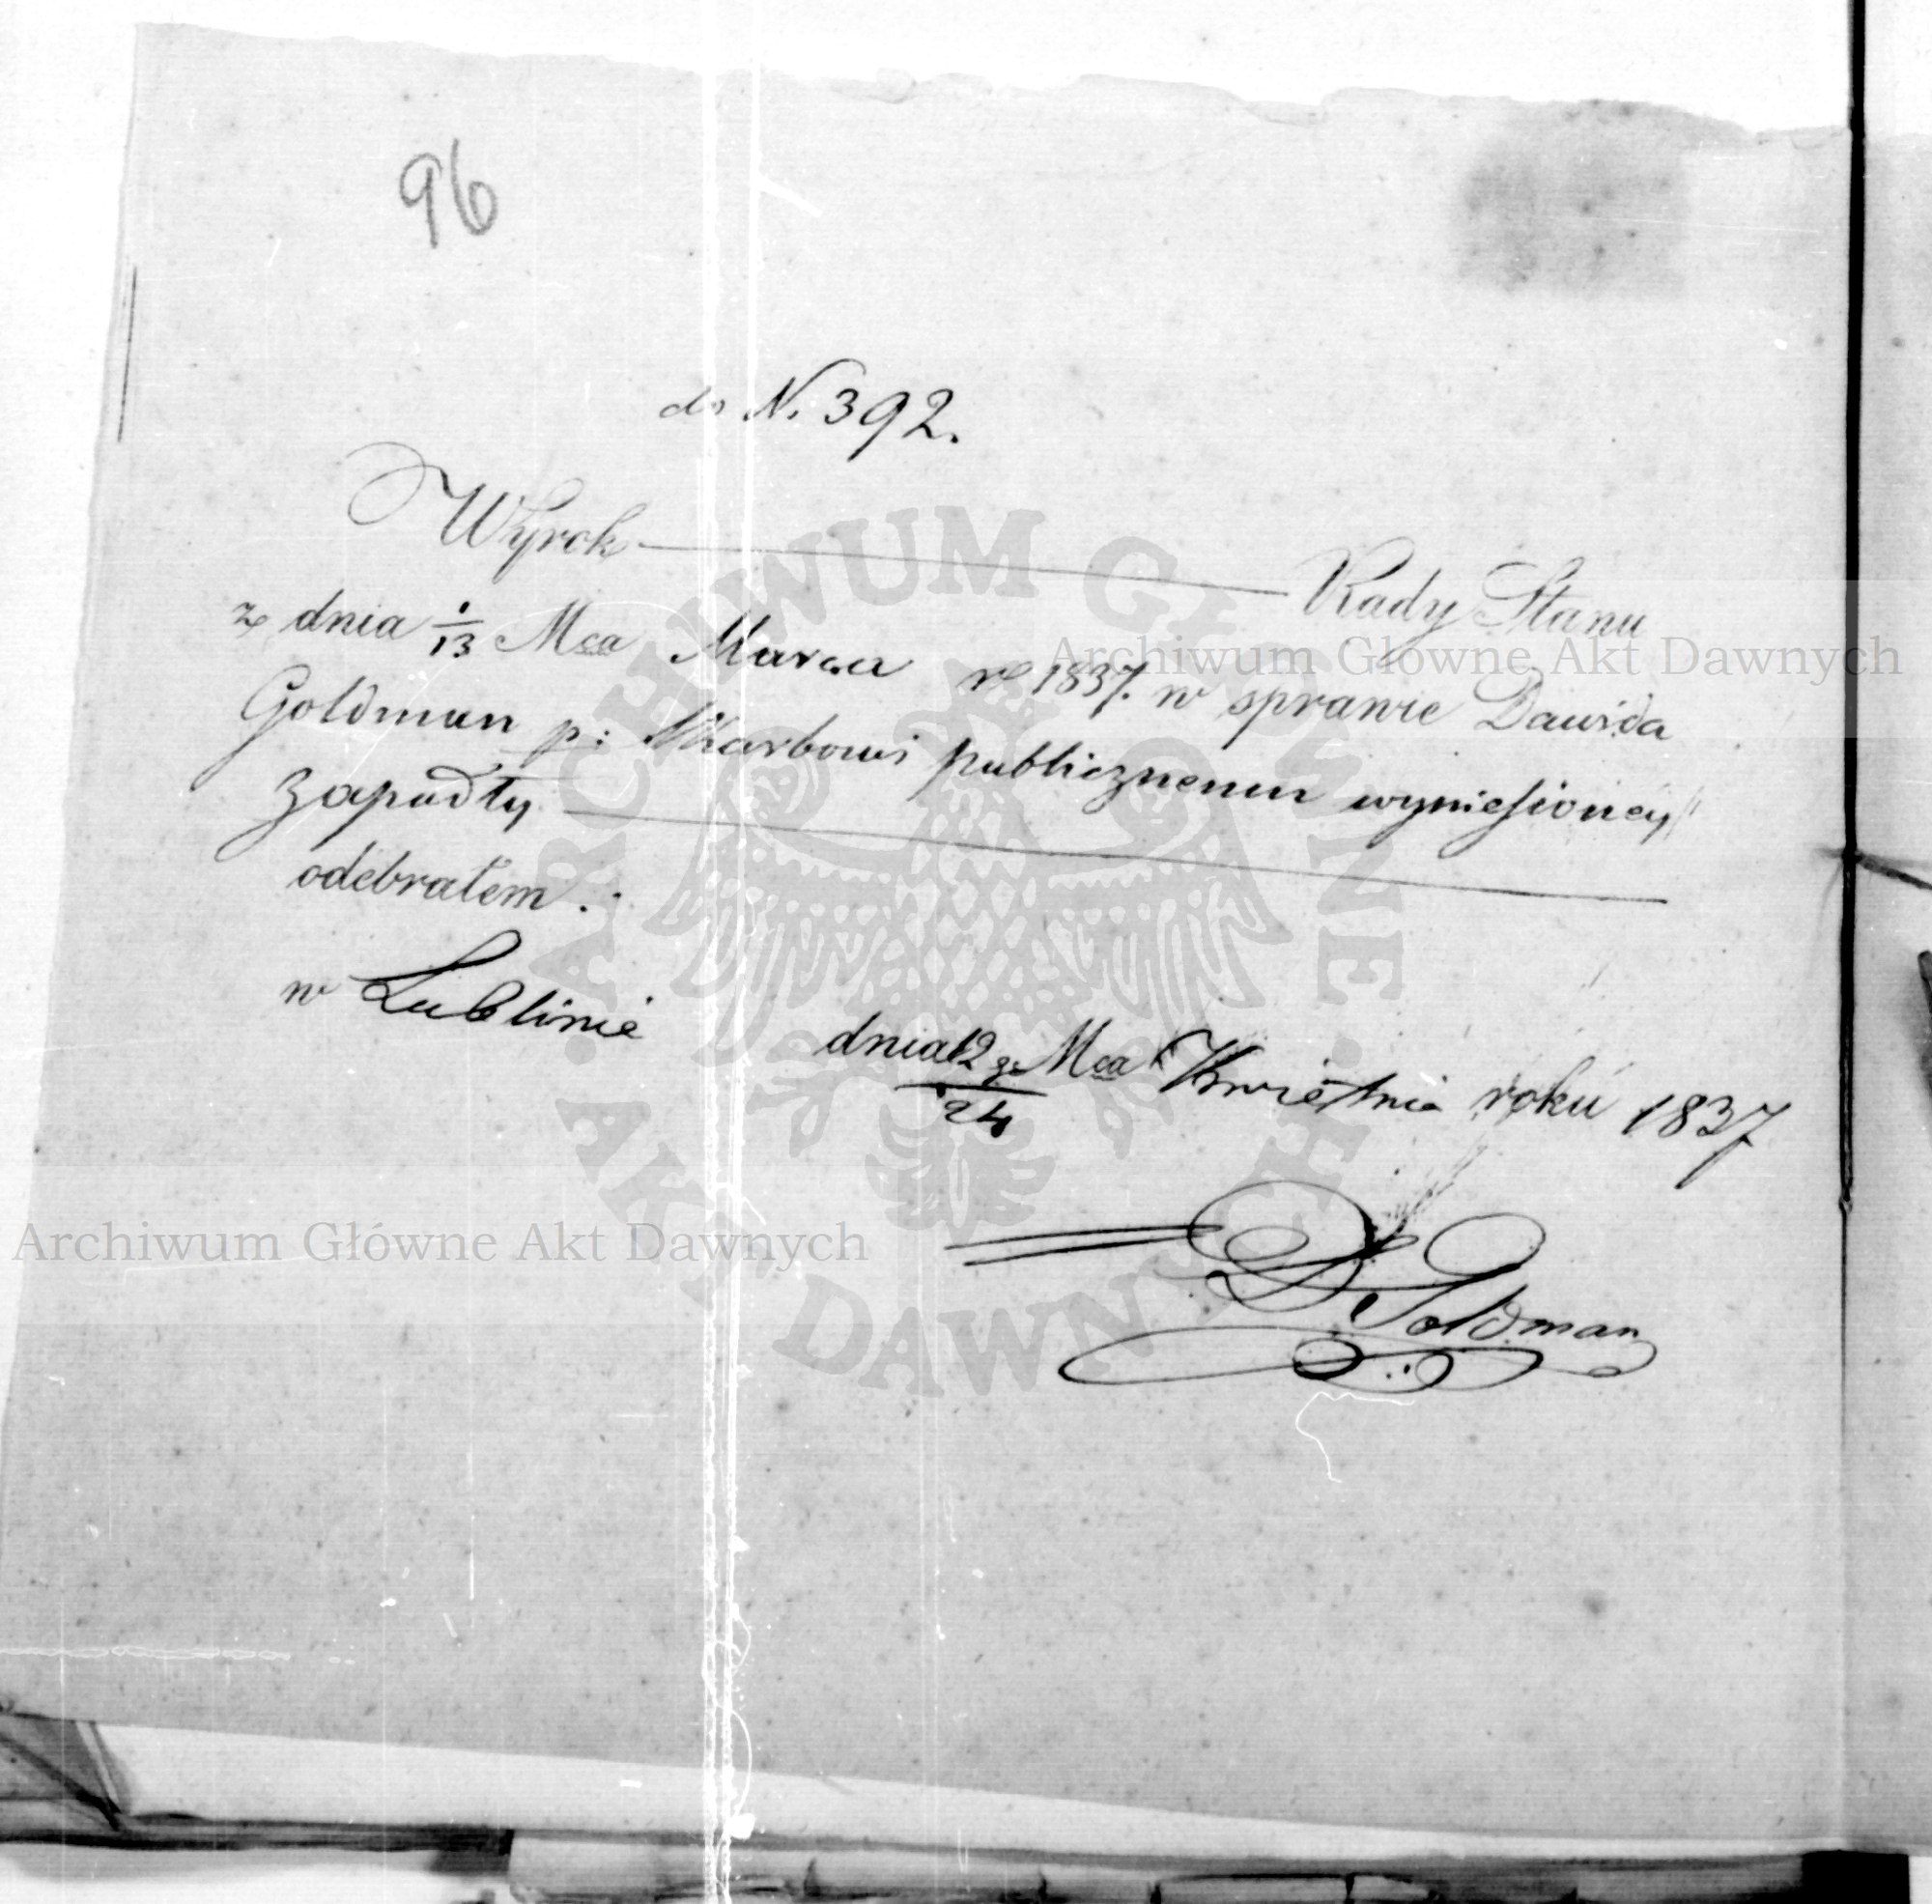 96
do N. 392.
Wyrok — Rady Stanu
z dnia 1/13 Mca Marca r. 1837. w sprawie Dawida
Goldman p: Skarbowi publicznemu wyniesioney
zapadły
odebrałem.
w Lublinie
dnia 12 go/24 Mca Kwietnia roku 1837
D. Goldman
Archiwum Główne Akt Dawnych
Archiwum Główne Akt Dawnych
ARCHIWUM GŁÓWNE AKT DAWNYCH